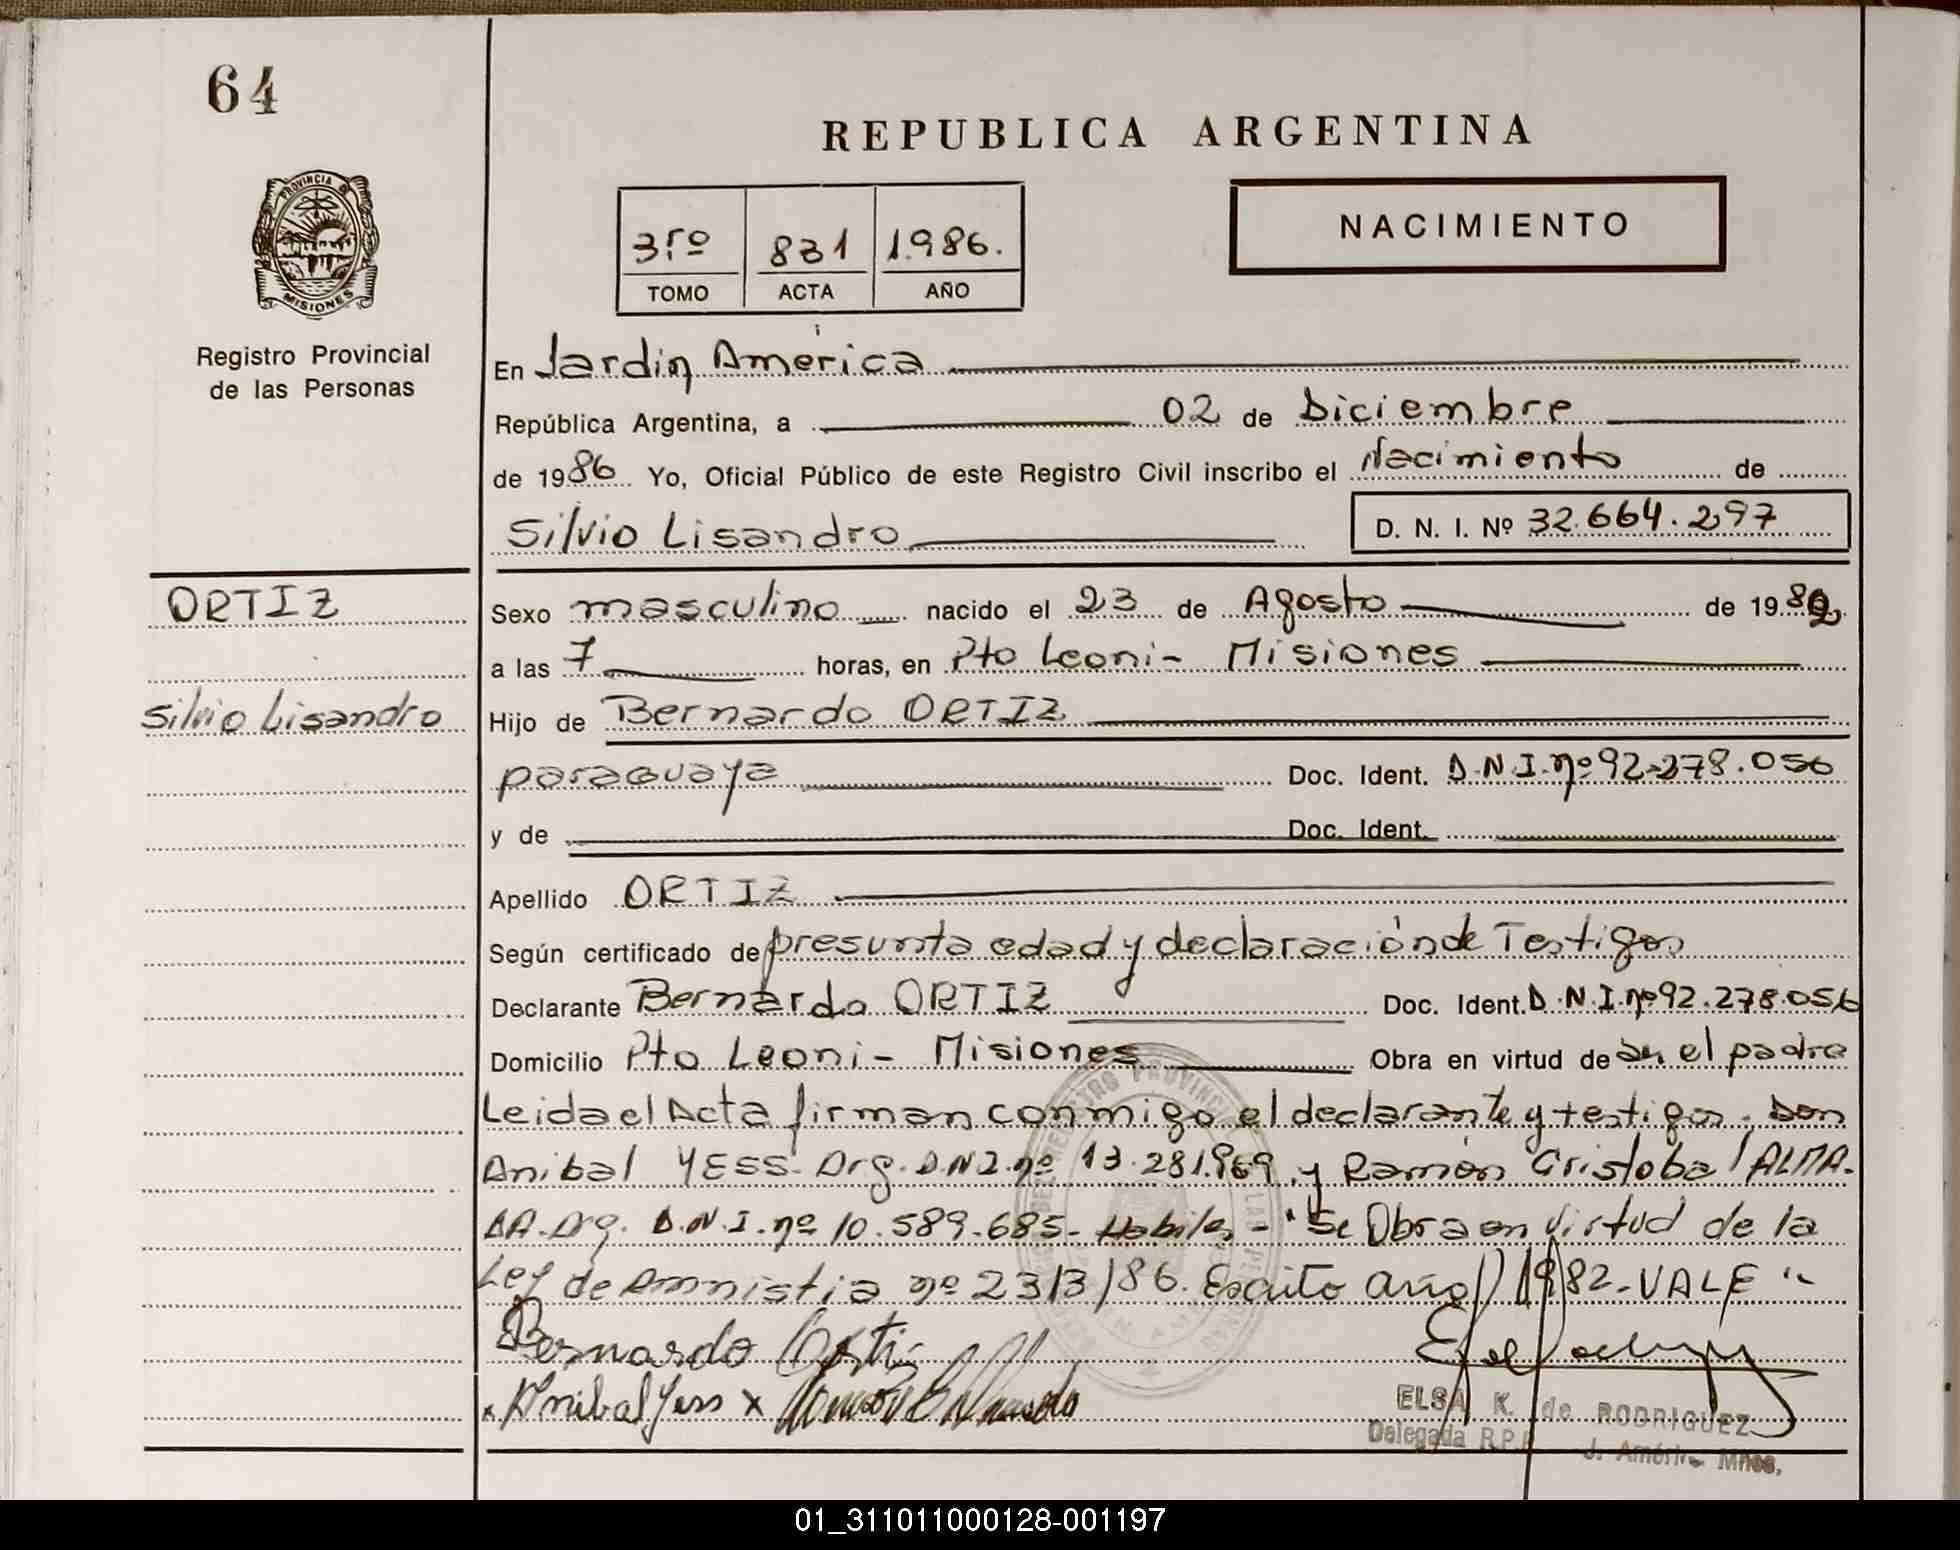 64
REPUBLICA ARGENTINA
PROVINCIA DE
MISIONES
NACIMIENTO
3ro 831 1.986.
TOMO ACTA AÑO
Registro Provincial
de las Personas
En Jardin América
República Argentina, a 02 de Diciembre
de 1986 Yo, Oficial Público de este Registro Civil inscribo el Nacimiento de
Silvio Lisandro D. N. I. Nº 32.664.297
ORTIZ
Silvio Lisandro
Sexo masculino nacido el 23 de Agosto de 1982
a las 7 horas, en Pto Leoni - Misiones
Hijo de Bernardo ORTIZ
paraguaya Doc. Ident. D.N.I.nº 92.278.056
y de Doc. Ident.
Apellido ORTIZ
Según certificado de presunta edad y declaración de Testigos
Declarante Bernardo ORTIZ Doc. Ident. D.N.I.nº 92.278.056
Domicilio Pto Leoni - Misiones Obra en virtud de ser el padre
Leida el Acta firman conmigo el declarante y testigos. Don
Anibal YESS. Arg. D.N.I. nº 13.281.969 y Ramón Cristobal ALMA-
DA. Arg. D.N.I. nº 10.589.685 - Habiles - "Se Obra en Virtud de la
Ley de Amnistia nº 2313/86. Escrito año 1982 - VALE "
Bernardo Ortiz
x Anibal Yess x
ELSA K. de RODRIGUEZ
Delegada R.P.P. J. América Mnes.
01_311011000128-001197